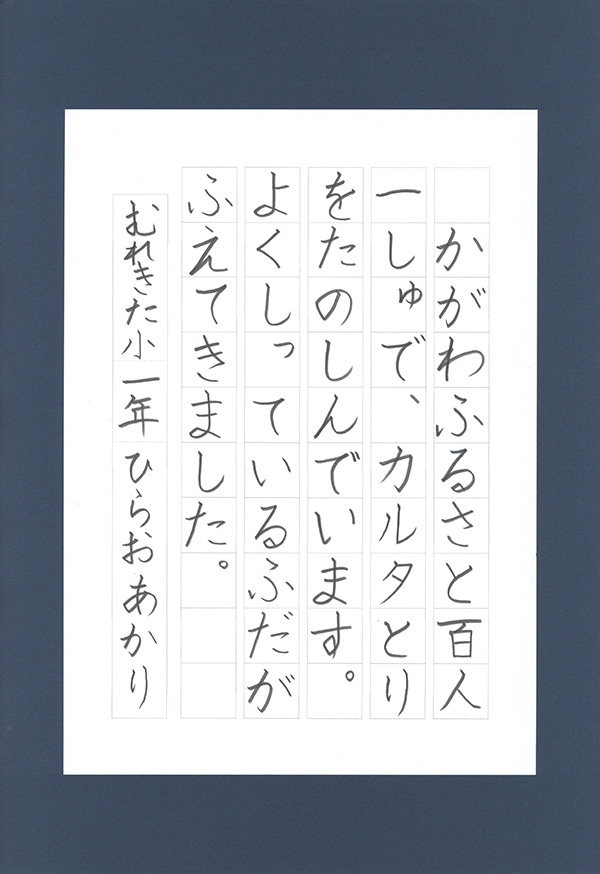 かがわふるさと百人
一しゅで、カルタとり
をたのしんでいます。
よくしっているふだが
ふえてきました。
むれきた小一年ひらおあかり